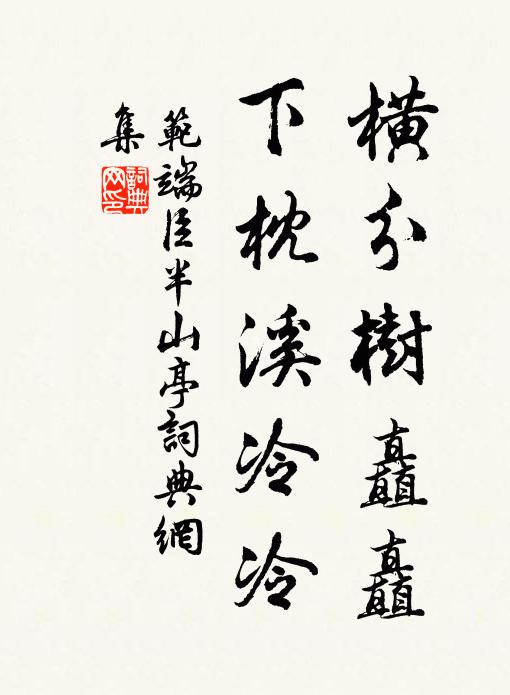 橫分樹矗矗
下枕溪冷冷
範端臣半山亭詞典網
集
詞典網印